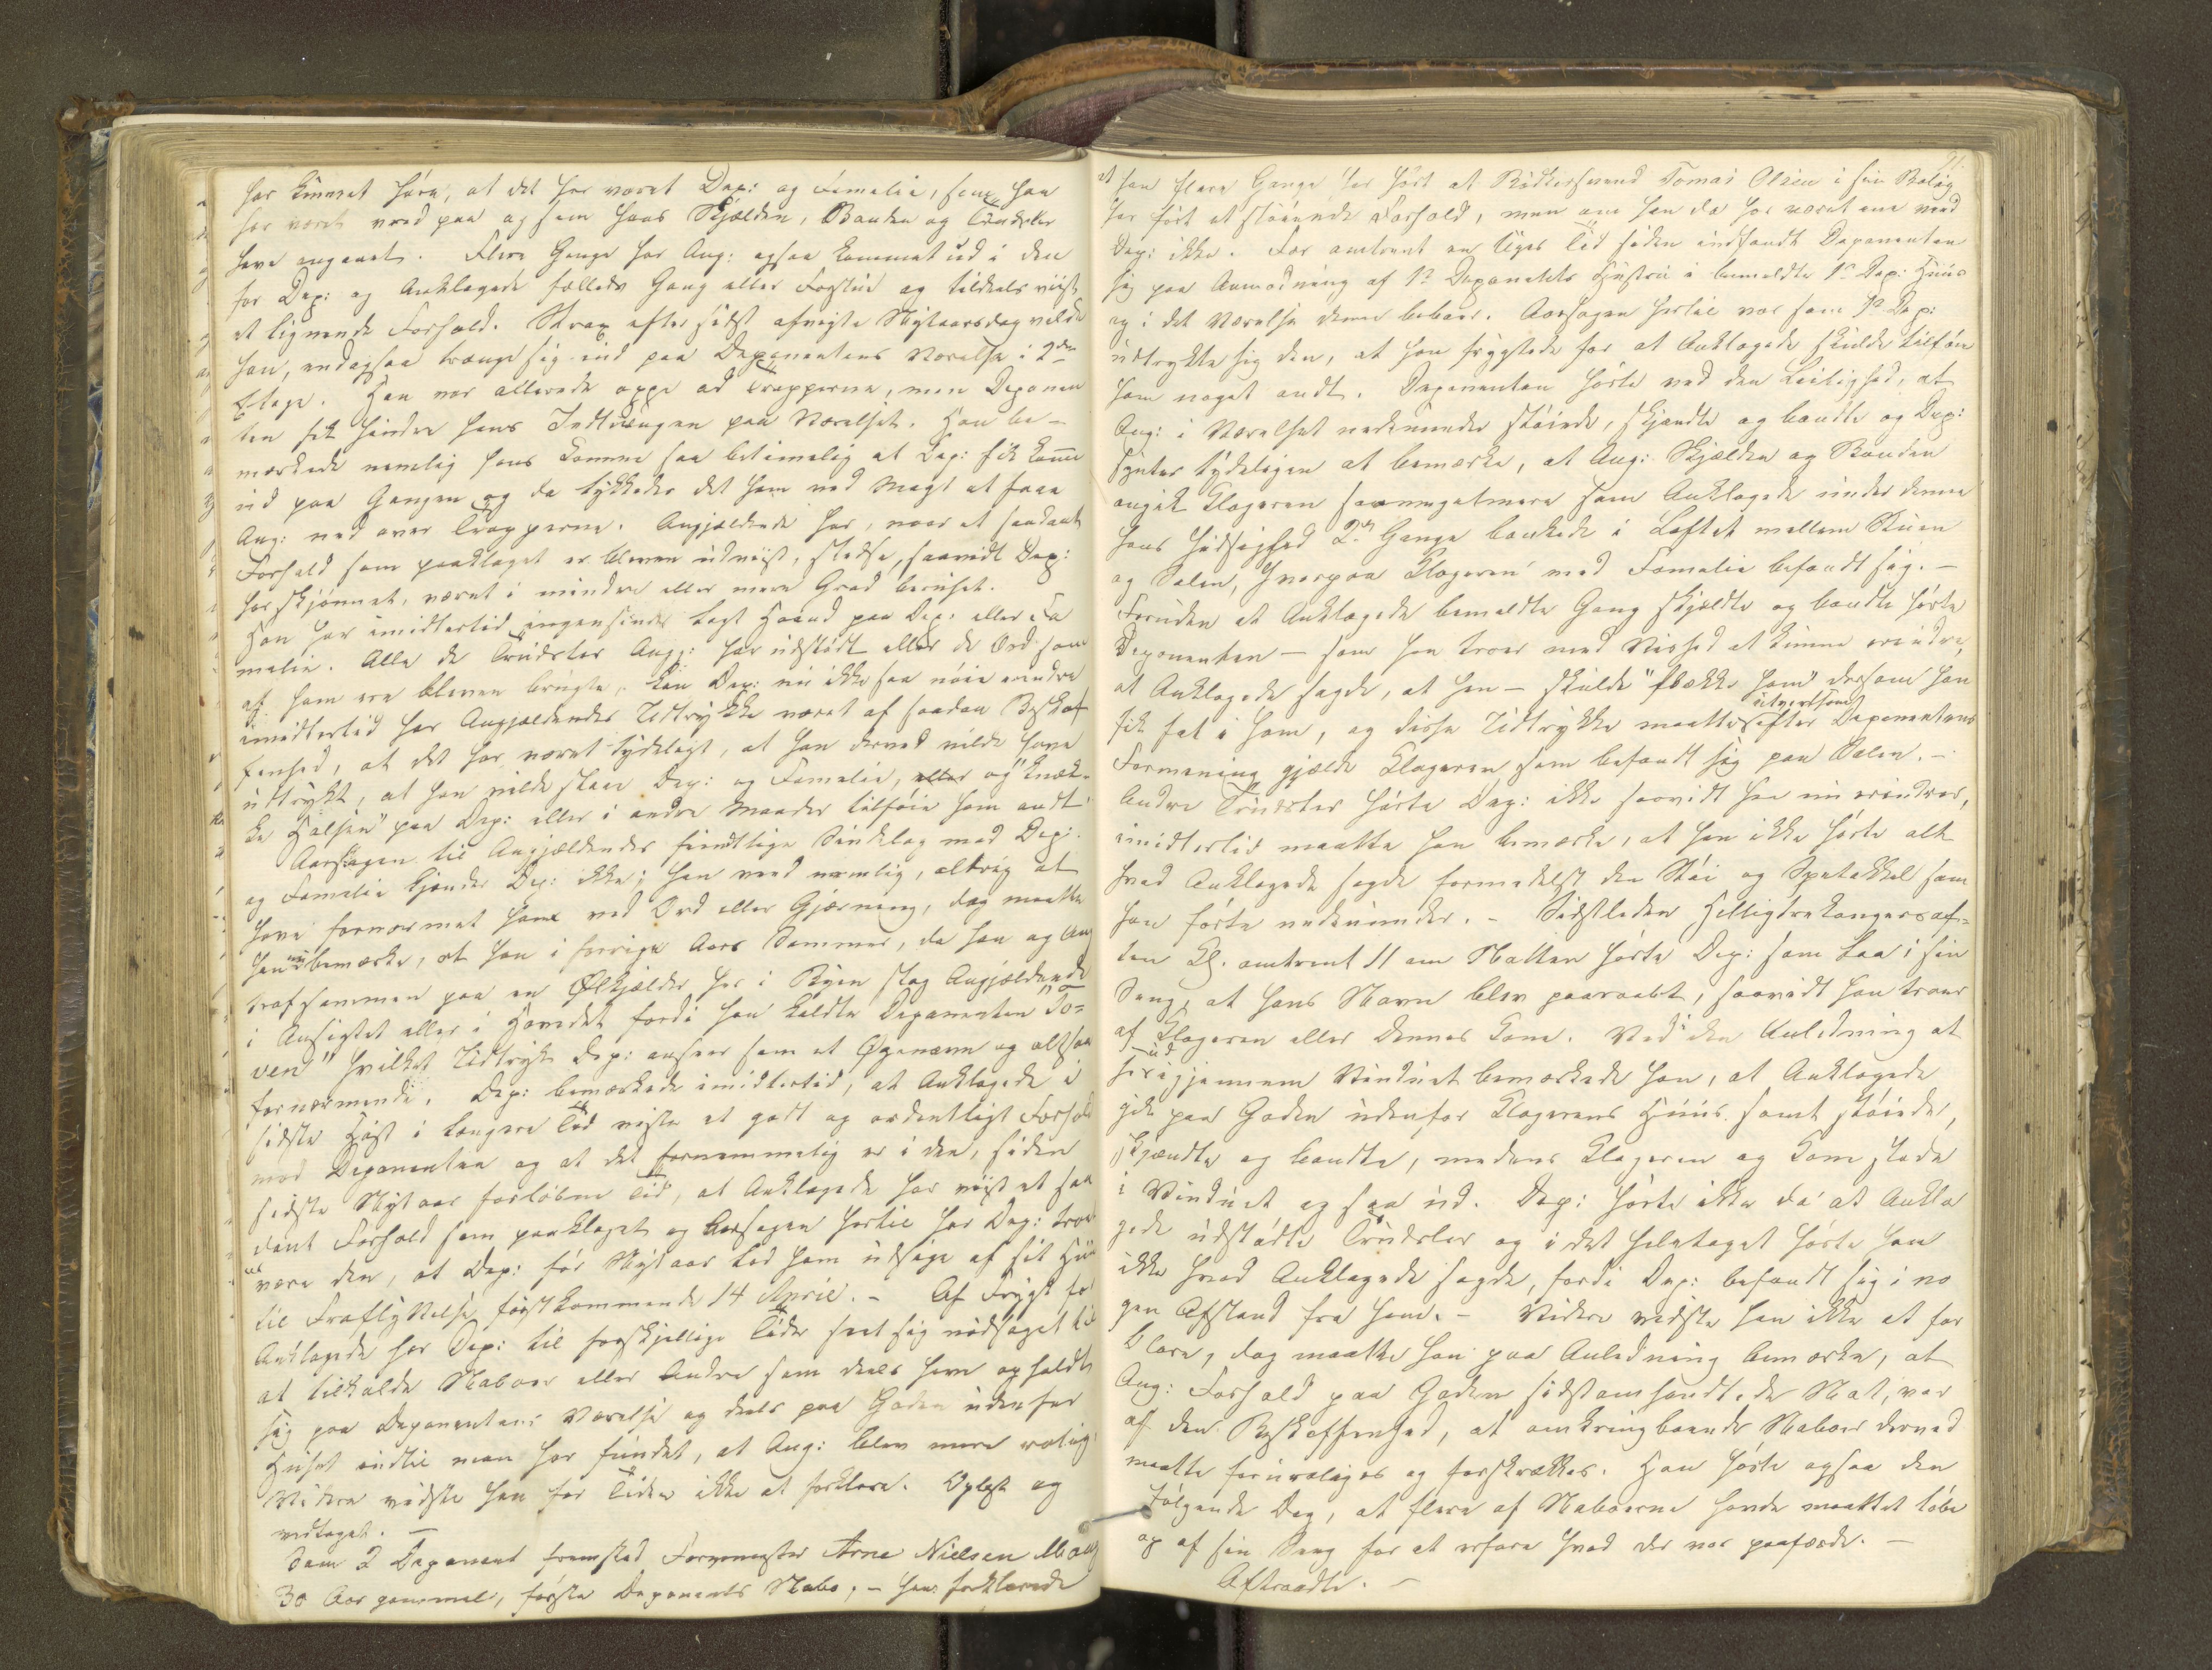 har kunnet høre, at det har været Dep: og Familie, som han
har været vred paa og som hans Skjælden, Banden og Trudsler
have angaaet. Flere Gange har Ang: ogsaa kommet ud i den
for Dep: og Anklagede fælleds Gang eller Forstue og tildeels viist
et lignende Forhold. Strax efter sidst afvigte Nytaarsdag vilde
han, endogsaa trænge sig ind paa Deponentens Værelse i 2den
Etage. Han var allerede oppe ad Trapperne, men Deponen
ten fik hindre hans Indtrængen paa Værelset. Han be-
mærkede nemlig hans Komme saa betimelig at Dep: fik komme
ud paa Gangen og da lykkedes det ham med Magt at faae
Ang: ned over Trapperne. Angjældende har, naar et saadant
Forhold som paaklaget er bleven udviist, stedse, saavidt Dep:
har skjønnet, været i mindre eller mere Grad beruset.
Han har imidlertid ingensinde lagt Haand paa Dep: eller Fa
milie. Alle de Trudsler Angj: har udstødt eller de Ord som
af ham ere blevne brugte, kan Dep: nu ikke saa nøie erindre
imidlertid har Angjældendes Udtrykke været af saadan Beskaf
fenhed, at det har været tydeligt, at han derved vilde have
udtrykt, at han vilde slaae Dep: og Familie, eller og "knæk-
ke Halsen" paa Dep: eller i andre Maader tilføie ham ondt.
Aarsagen til Angjældendes fiendtlige Sindelag mod Dep:
og Familie kjender Dep: ikke; han veed nemlig, aldrig at
have fornærmet ham ved Ord eller Gjerning, dog maatte
han bemærke, at han i forrige Aars Sommer, da han og Ang
traf sammen paa en Ølkjælder her i Byen slog Angjældende
i Ansigtet eller i Hovedet fordi han kaldte Deponenten "To-
ven" hvilket Udtryk Dep: ansaae som et Øgenavn og altsaa
fornærmende. Dep: bemærkede imidlertid, at Anklagede i
sidste Høst i længere Tid viste et godt og ordentligt Forhold
mod Deponenten og at det fornemmelig er i den, siden
sidste Nytaar forløbne Tid, at Anklagede har viist et saa
dant Forhold som paaklaget og Aarsagen hertil har Dep: troet
at være den, at Dep: før Nytaar lod ham udsige af sit Huus
til Fraflyttelse førstkommende 14 April. - Af Frygt for
Anklagede har Dep: til forskjellige Tider seet sig nødsaget til
at tilkalde Naboer eller Andre som deels have opholdt
sig paa Deponentens Værelse og deels paa Gaden udenfor
Huset indtil man har fundet, at Ang: blev mere rolig.
Videre vidste han for Tiden ikke at forklare. Oplæst og
vedtaget. -
Som 2 Deponent fremstod Formester Arne Nielsen
30 Aar gammel, første Deponents Nabo, - han forklarede
91.
at han flere Gange har hørt at Bødkersvend Tomas Olsen i sin Bolig
har ført et støiende Forhold, men om han da har været ene veed
Dep: ikke. For omtrent en Uges Tid siden indfandt Deponenten
sig paa Anmodning af 1ste Deponents Hustru i bemeldte 1ste Dep: Huus
og i det Værelse denne beboer. Aarsagen hertil var som 1ste Dep:
udtrykte sig den, at hun frygtede for at Anklagede skulde tilføie
ham noget ondt. Deponenten hørte ved den Leilighed, at
Ang: i Værelset nedenunder støiede, skjændte og bandte og Dep:
syntes tydeligen at bemærke, at Ang: Skjælden og Banden
angik Klageren saameget mere som Anklagede under denne
hans Hidsighed 2de Gange bankede i Loftet mellem Stuen
og Salen, hvorpaa Klageren med Familie befandt sig. -
Foruden at Anklagede bemeldte Gang skjældte og bandte hørte
Deponenten - som han troer med Vished at kunne erindre,
at Anklagede sagde, at han - skulde "flække ham" dersom han
fik fat i ham, og disse Udtrykke maatte utvivlsomt efter Deponentens
Formening gjælde Klageren som befandt sig paa Salen. -
Andre Trudsler hørte Dep: ikke saavidt han nu erindrer,
imidlertid maatte han bemærke, at han ikke hørte alt
hvad Anklagede sagde formedelst den Støi og Spetakkel som
han førte nedenunder. - Sidstleden Helligtrekongersaf-
ten Kl. omtrent 11 om Natten hørte Dep: som laa i sin
Seng, at hans Navn blev paaraabt, saavidt han troer
af Klageren eller dennes Kone. Ved i den Anledning at
see ud igjennem Vinduet bemærkede han, at Anklagede
gik paa Gaden udenfor Klagerens Huus samt støiede,
skjændte og bandte, medens Klageren og Kone stode
i Vinduet og saa ud. Dep: hørte ikke da at Ankla
gede udstødte Trudsler og i det heletaget hørte han
ikke hvad Anklagede sagde, fordi Dep: befandt sig i no
gen Afstand fra ham. - Videre vidste han ikke at for
klare, dog maatte han paa Anledning bemærke, at
Ang: Forhold paa Gaden sidstomhandlede Nat, var
af den Beskaffenhed, at omkringboende Naboer derved
maatte foruroliges og forskrækkes. Han hørte ogsaa den
følgende Dag, at flere af Naboerne havde maattet løbe
op af sin Seng for at erfare hvad der var paafærde. -
Aftraadte. -